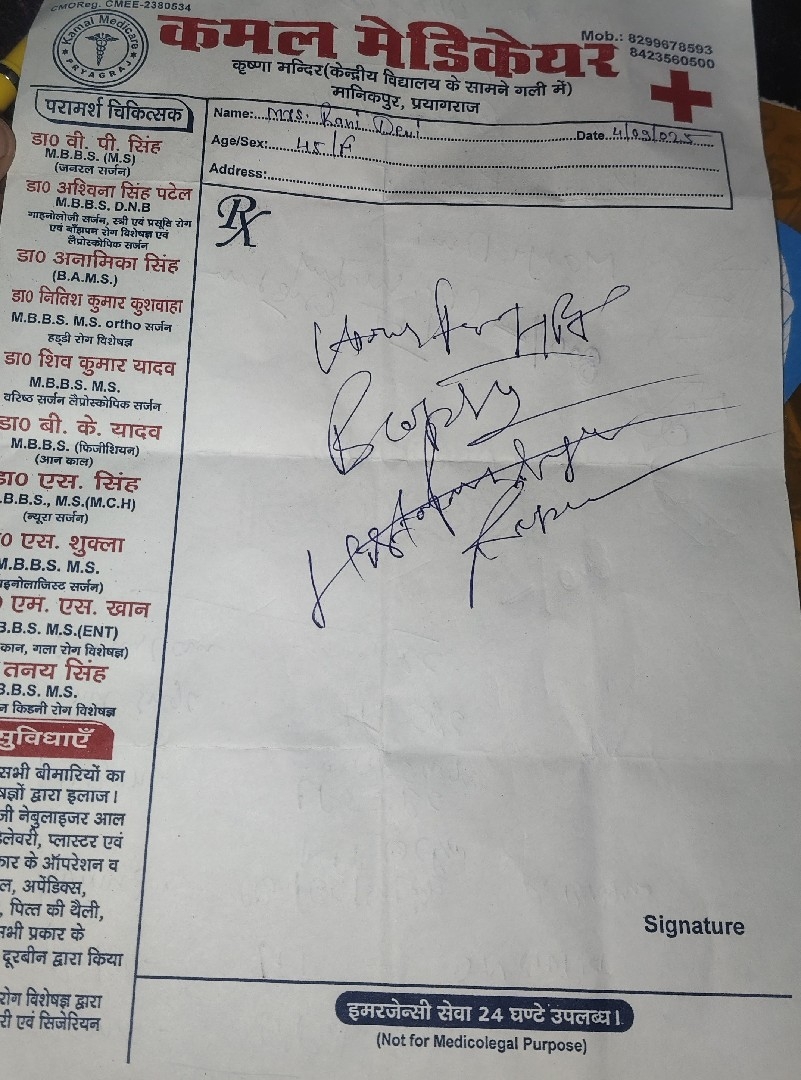 CMOReg. CMEE-2380534
Kamal Medicare
PRYAGRAJ
कमल मेडिकेयर
Mob.: 8299678593
8423560500
कृष्णा मन्दिर(केन्द्रीय विद्यालय के सामने गली में)
मानिकपुर, प्रयागराज
परामर्श चिकित्सक
डा0 वी. पी. सिंह
M.B.B.S. (M.S)
(जनरल सर्जन)
डा0 अश्विना सिंह पटेल
M.B.B.S. D.N.B
गाइनोलोजी सर्जन, स्त्री एवं प्रसूति रोग
एवं बाँझपन रोग विशेषज्ञ एवं
लैप्रोस्कोपिक सर्जन
डा0 अनामिका सिंह
(B.A.M.S.)
डा0 नितिश कुमार कुशवाहा
M.B.B.S. M.S. ortho सर्जन
हड्डी रोग विशेषज्ञ
डा0 शिव कुमार यादव
M.B.B.S. M.S.
वरिष्ठ सर्जन लैप्रोस्कोपिक सर्जन
डा0 बी. के. यादव
M.B.B.S. (फिजीशियन)
(आन काल)
डा0 एस. सिंह
.B.B.S., M.S.(M.C.H)
(न्यूरा सर्जन)
0 एस. शुक्ला
M.B.B.S. M.S.
इनोलाजिस्ट सर्जन)
एम. एस. खान
B.B.S. M.S.(ENT)
कान, गला रोग विशेषज्ञ)
तनय सिंह
B.B.S. M.S.
न किडनी रोग विशेषज्ञ
सुविधाएँ
सभी बीमारियों का
षज्ञों द्वारा इलाज।
जी नेबुलाइजर आल
लेवरी, प्लास्टर एवं
कार के ऑपरेशन व
ल, अपेंडिक्स,
, पित्त की थैली,
सभी प्रकार के
दूरबीन द्वारा किया
रोग विशेषज्ञ द्वारा
री एवं सिजेरियन
Name: Mrs. Rani Devi Date 4/09/025
Age/Sex: 45/F
Address:
Rx
Biopsy
Signature
इमरजेन्सी सेवा 24 घण्टे उपलब्ध।
(Not for Medicolegal Purpose)